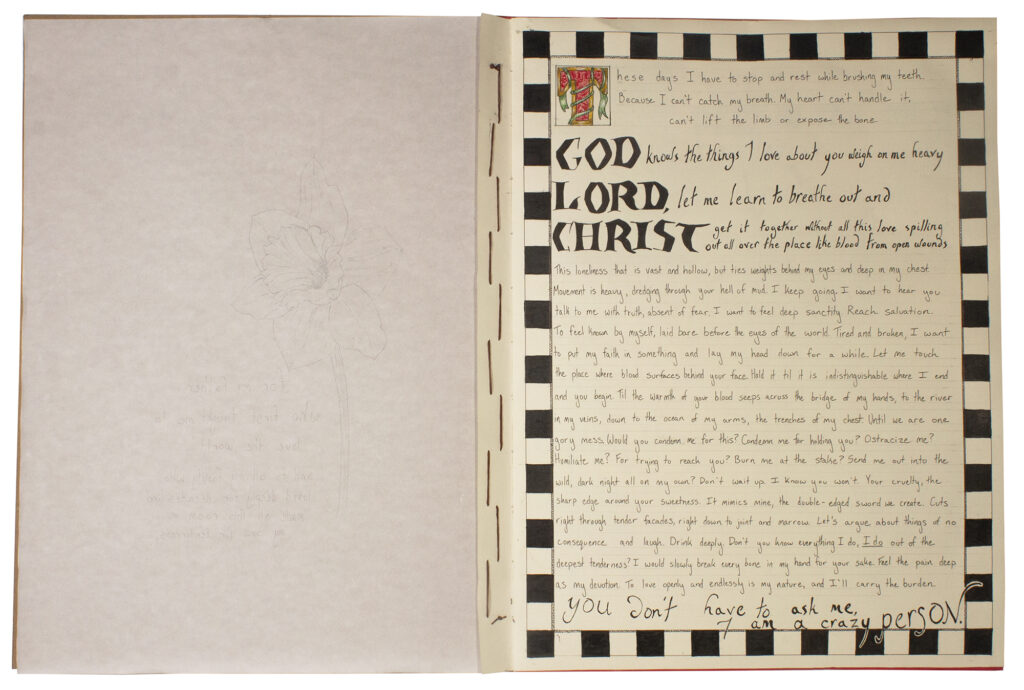 These days I have to stop and rest while brushing my teeth.
Because I can't catch my breath. My heart can't handle it,
can't lift the limb or expose the bone
GOD knows the things I love about you weigh on me heavy
LORD, let me learn to breathe out and
CHRIST get it together without all this love spilling
out all over the place like blood from open wounds
This loneliness that is vast and hollow, but ties weights behind my eyes and deep in my chest.
Movement is heavy, dredging through your hell of mud. I keep going. I want to hear you
talk to me with truth, absent of fear. I want to feel deep sanctity. Reach salvation.
To feel known by myself, laid bare before the eyes of the world. Tired and broken, I want
to put my faith in something and lay my head down for a while. Let me touch
the place where blood surfaces behind your face. Hold it til it is indistinguishable where I end
and you begin. Til the warmth of your blood seeps across the bridge of my hands, to the river
in my veins, down to the ocean of my arms, the trenches of my chest. Until we are one
gory mess. Would you condemn me for this? Condemn me for holding you? Ostracize me?
Humiliate me? For trying to reach you? Burn me at the stake? Send me out into the
wild, dark night all on my own? Don't wait up. I know you won't. Your cruelty, the
sharp edge around your sweetness. It mimics mine, the double-edged sword we create. Cuts
right through tender facades, right down to joint and marrow. Let's argue about things of no
consequence and laugh. Drink deeply. Don't you know everything I do, I do out of the
deepest tenderness? I would slowly break every bone in my hand for your sake. Feel the pain deep
as my devotion. To love openly and endlessly is my nature, and I'll carry the burden.
you don't have to ask me,
I am a crazy person.